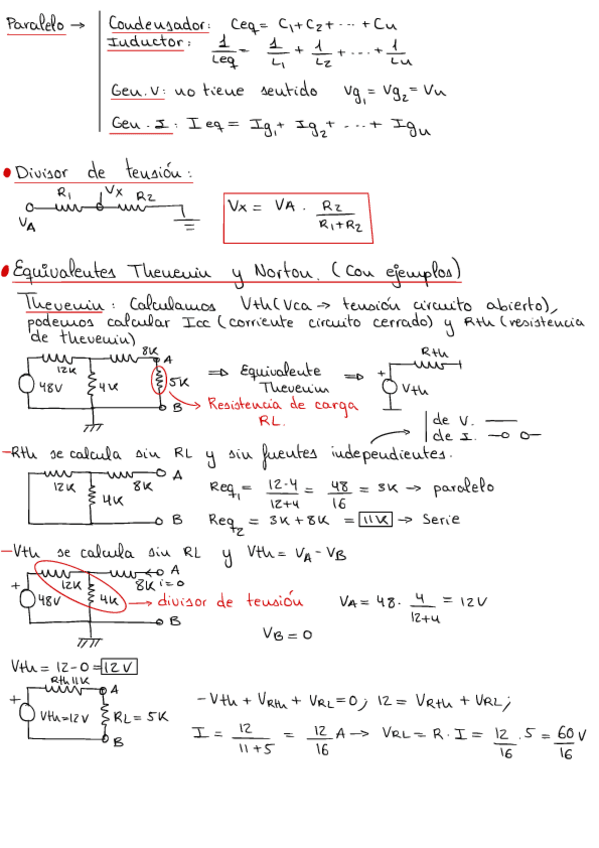 Paralelo → Condensador: Ceq = C₁+C₂+ ... + Cu
Inductor: 1/Leq = 1/L₁ + 1/L₂ + ... + 1/Lu
Gen.V: no tiene sentido Vg₁ = Vg₂ = Vu
Gen. I: Ieq = Ig₁ + Ig₂ + ... + Igu
• Divisor de tensión:
R₁ Vx R₂
VA
Vx = VA · R₂/(R₁+R₂)
• Equivalentes Thevenin y Norton. (Con ejemplos)
Thevenin: Calculamos Vth (Vca → tensión circuito abierto),
podemos calcular Icc (corriente circuito cerrado) y Rth (resistencia
de thevenin)
12K 8K A
48V 4K 5K
B
⇒ Equivalente Thevenin ⇒
Rth
+ Vth
→ Resistencia de carga
RL.
de V.
de I.
-Rth se calcula sin RL y sin fuentes independientes.
12K 8K A
4K
B
Req₁ = 12·4/12+4 = 48/16 = 3K → paralelo
Req₂ = 3K + 8K = 11K → Serie
-Vth se calcula sin RL y Vth = VA - VB
+ 12K 8K i=0 A
48V 4K
B
→ divisor de tensión
VA = 48 · 4/12+4 = 12V
VB = 0
Vth = 12-0 = 12V
Rth 11K A
+ Vth = 12V RL = 5K
B
-Vth + VRth + VRL = 0; 12 = VRth + VRL;
I = 12/11+5 = 12/16 A → VRL = R · I = 12/16 · 5 = 60/16 V